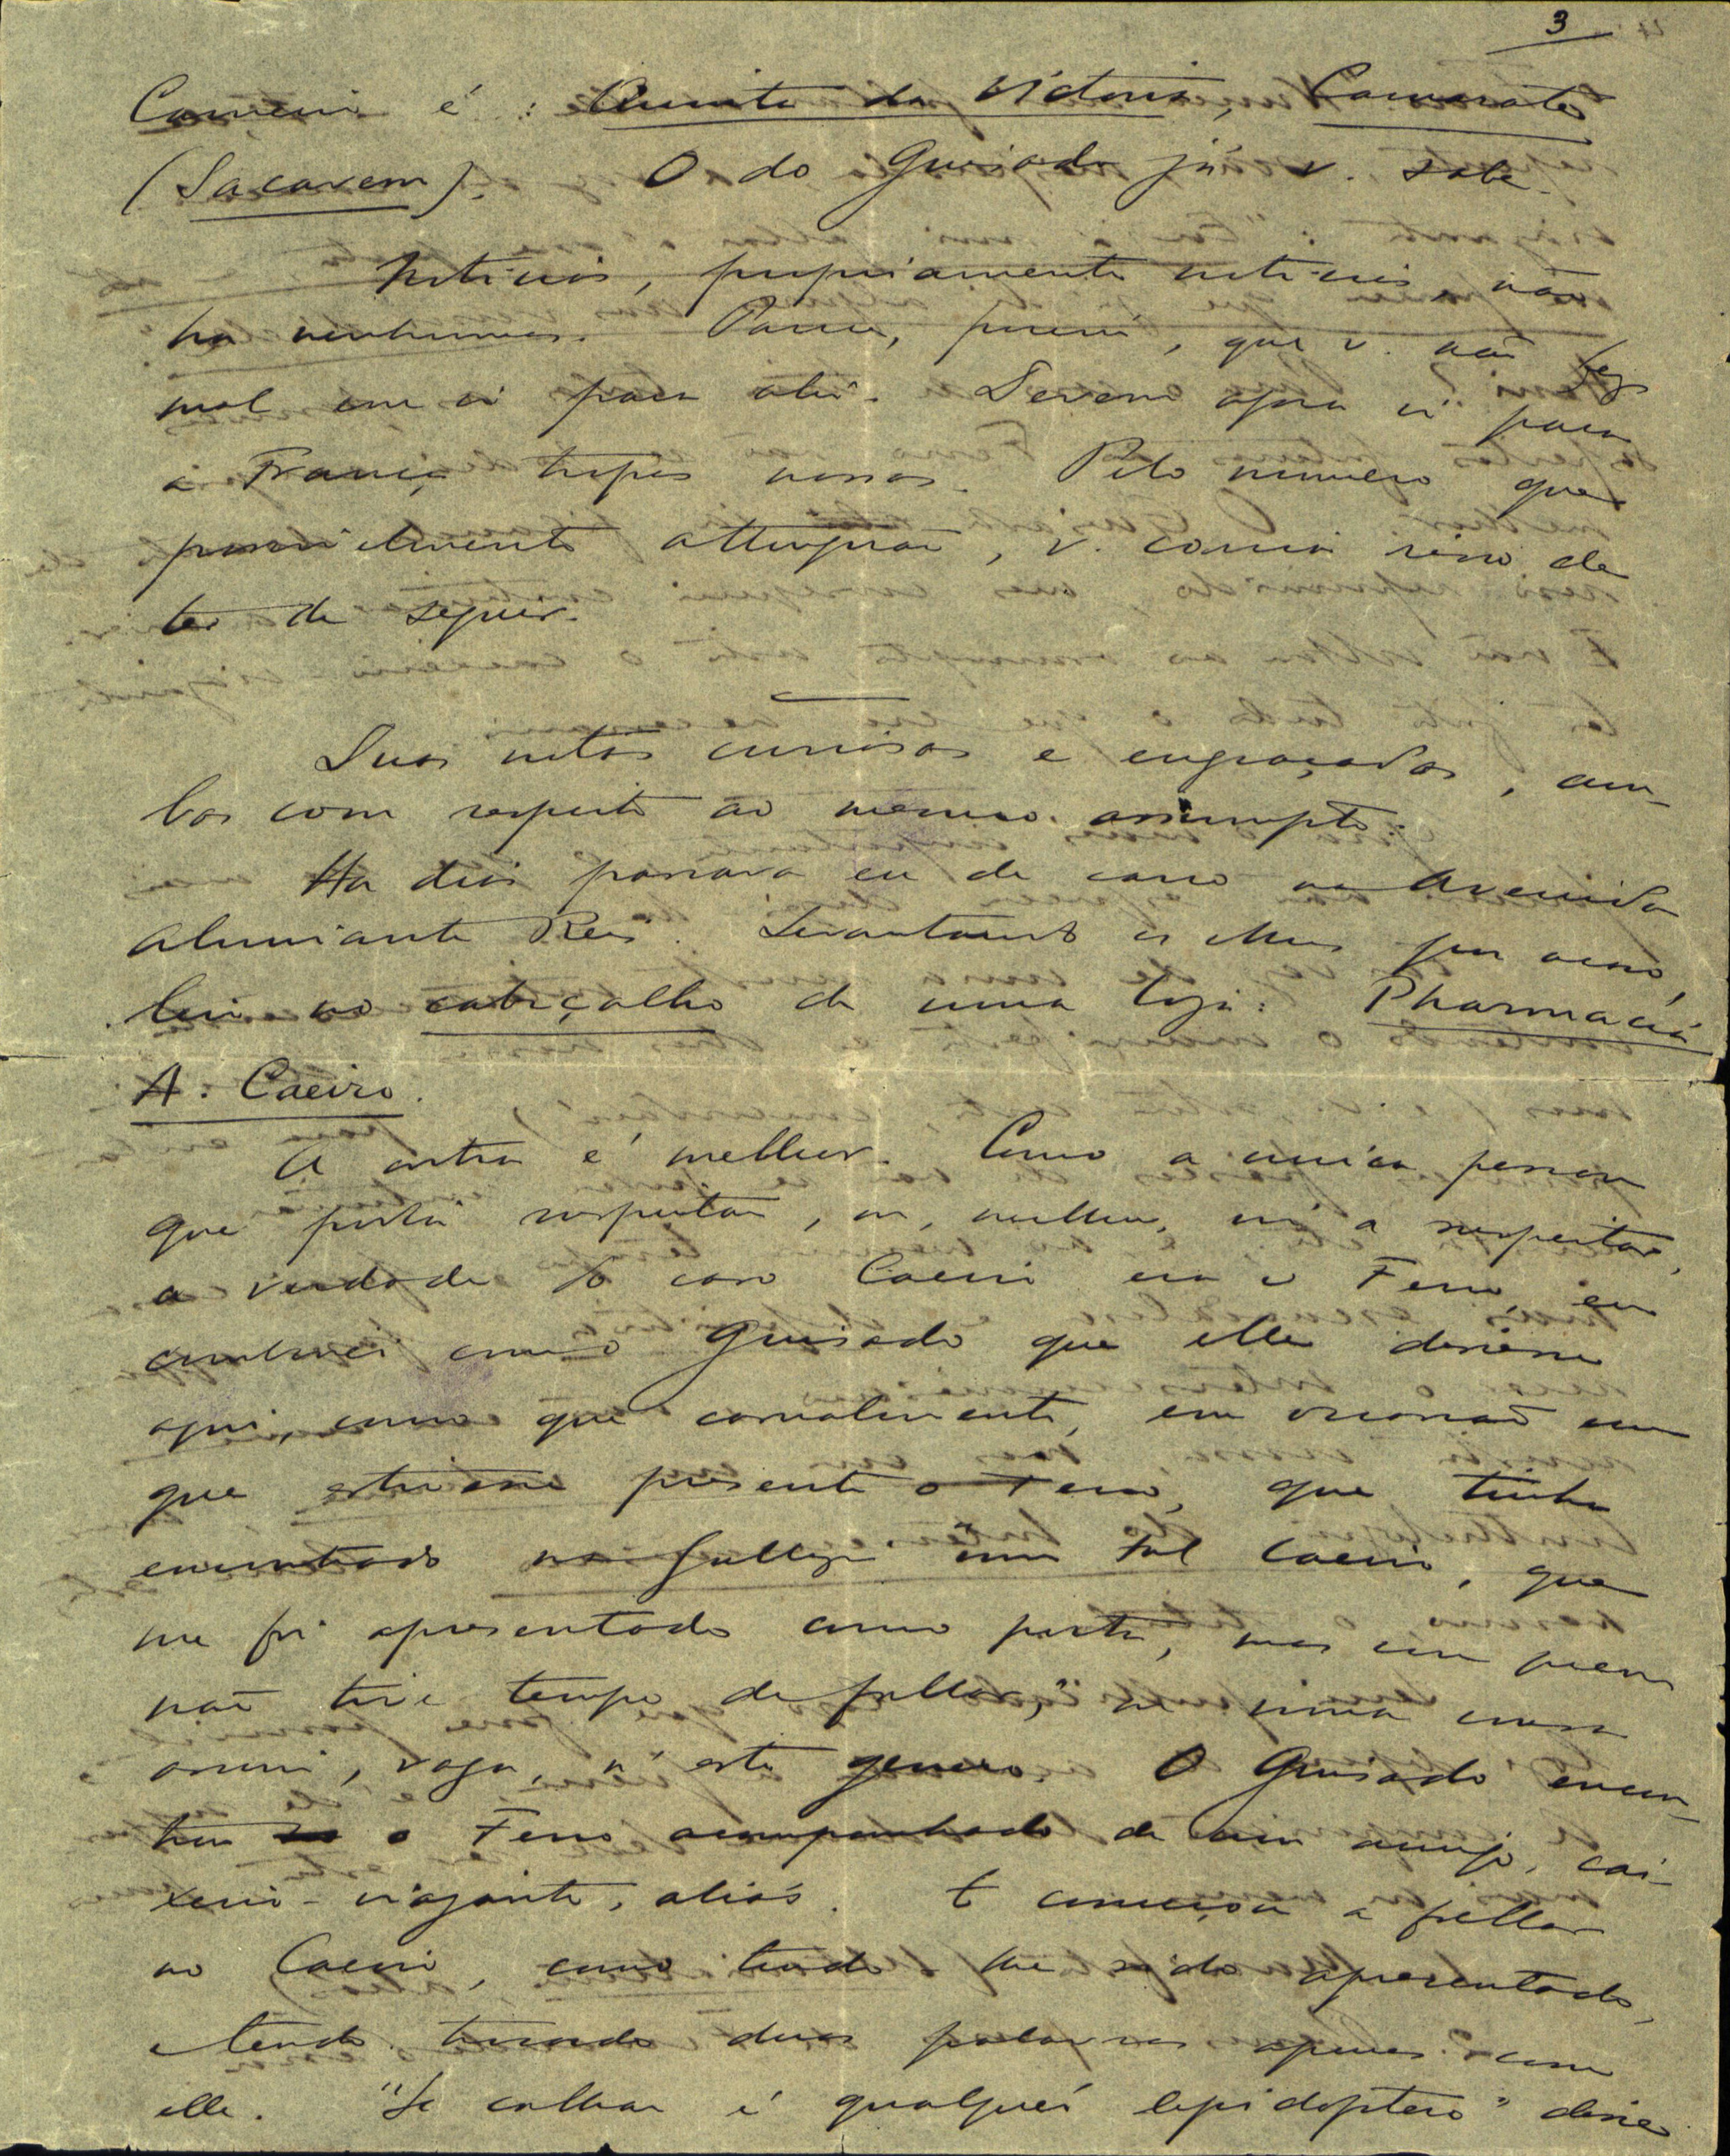 3
Carreira é: Quinta da Victoria, Camarate
(Sacavem). O do Guisado já v. sabe.
Noticias, propriamente noticias, não
ha nenhumas. Parece, porém, que v. não fez
mal em ir para ahi. Devem agora ir para
a França tropas nossas. Pelo numero que
possivelmente attingirão, v. corria risco de
ter de seguir.
Duas notas curiosas e engraçadas, am-
bas com respeito ao mesmo assumpto.
Ha dias passava eu de carro na Avenida
Almirante Reis. Levantando os olhos por acaso,
leio no cabeçalho de uma loja: Pharmacia
A. Caeiro.
A outra é melhor. Como a unica pessoa
que podia suspeitar, ou, melhor, vir a suspeitar,
a verdade do caso Caeiro era o Ferro, eu
combinei com o Guisado que elle dissesse
aqui, como que casualmente, em occasião em
que estivesse presente o Ferro, que tinha
encontrado na Galliza "um tal Caeiro, que
me foi apresentado como poeta, mas com quem
não tive tempo de fallar," ou uma cousa
assim, vaga, n'este genero. O Guisado encon-
trou o Ferro acompanhado de um amigo, cai-
xeiro-viajante, aliás. E começou a fallar
no Caeiro, como tendo-lhe sido apresentado,
e tendo trocado duas palavras apenas com
elle. "Se calhar é qualquer lepidoptero" disse